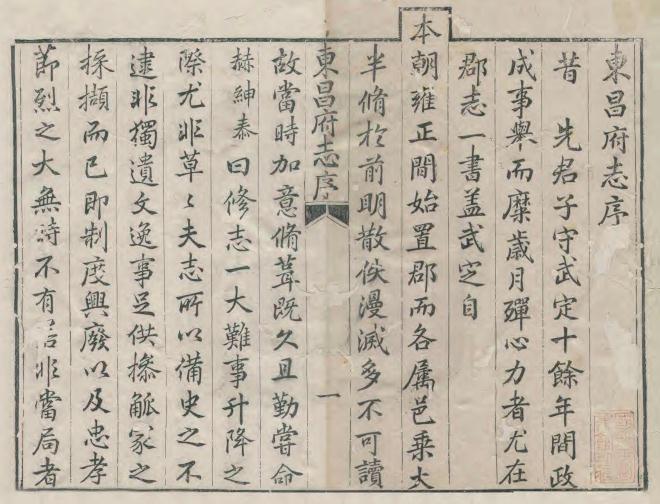 東昌府志序
昔　先君子守武定十餘年間政
成事舉而糜歲月殫心力者尤在
郡志一書蓋武定自
本朝雍正間始置郡而各屬邑乘大
半脩於前明散佚漫滅多不可讀
東昌府志序　一
故當時加意脩葺既久且勤嘗命
赫紳泰曰修志一大難事升降之
際尤非草〻夫志所以備史之不
逮非獨遺文逸事足供摻觚家之
採擷而已即制度興廢以及忠孝
節烈之大無時不有 非當局者